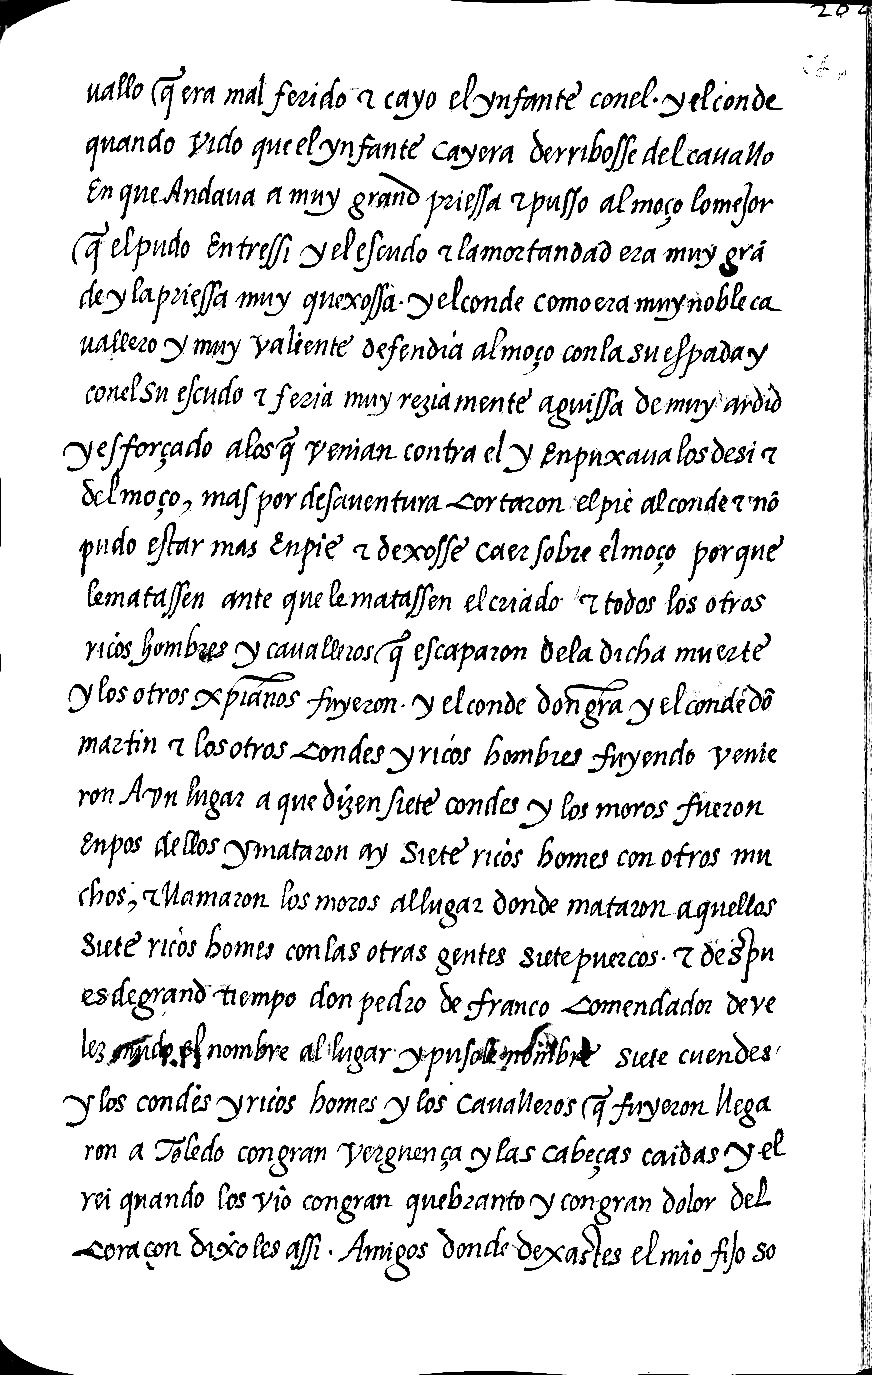 204
uallo q̃ era mal ferido τ cayo el ynfante conel. y el conde
quando vido que el ynfante cayera derribosse del cauallo
En que Andaua a muy grand priessa τ pusso al moço lo mejor
q̃ el pudo Entressi y el escudo τ la mortandad era muy grã
de y la priessa muy quexossa. y el conde como era muy noble ca
uallero y muy valiente defendia al moço con la su espada y
conel su escudo τ feria muy reziamente aguissa de muy ardid
y esforçado a los q̃ venian contra el y Enpuxaua los desi τ
del moço, mas por desauentura cortaron el pie al conde τ nõ
pudo estar mas Enpie τ dexosse caer sobre el moço porque
le matassen ante que le matassen el criado τ todos los otros
ricos hombres y caualleros q̃ escaparon de la dicha muerte
y los otros xp̃ianos fuyeron. y el conde don gr̃a y el conde dõ
martin τ los otros condes y ricos hombres fuyendo venie
ron A vn lugar a que dizen siete condes y los moros fueron
Enpos dellos y mataron ay siete ricos homes con otros mu
chos, τ llamaron los moros al lugar donde mataron aquellos
siete ricos homes con las otras gentes siete puercos. τ despu
es de grand tiempo don pedro de franco comendador de ve
lez mudo el nombre al lugar y pusole nombre siete cuendes
y los condes y ricos homes y los caualleros q̃ fuyeron llega
ron a Toledo con gran verguença y las cabeças caidas y el
rei quando los vio con gran quebranto y con gran dolor del
coraçon dixoles assi. Amigos donde dexastes el mio fijo so